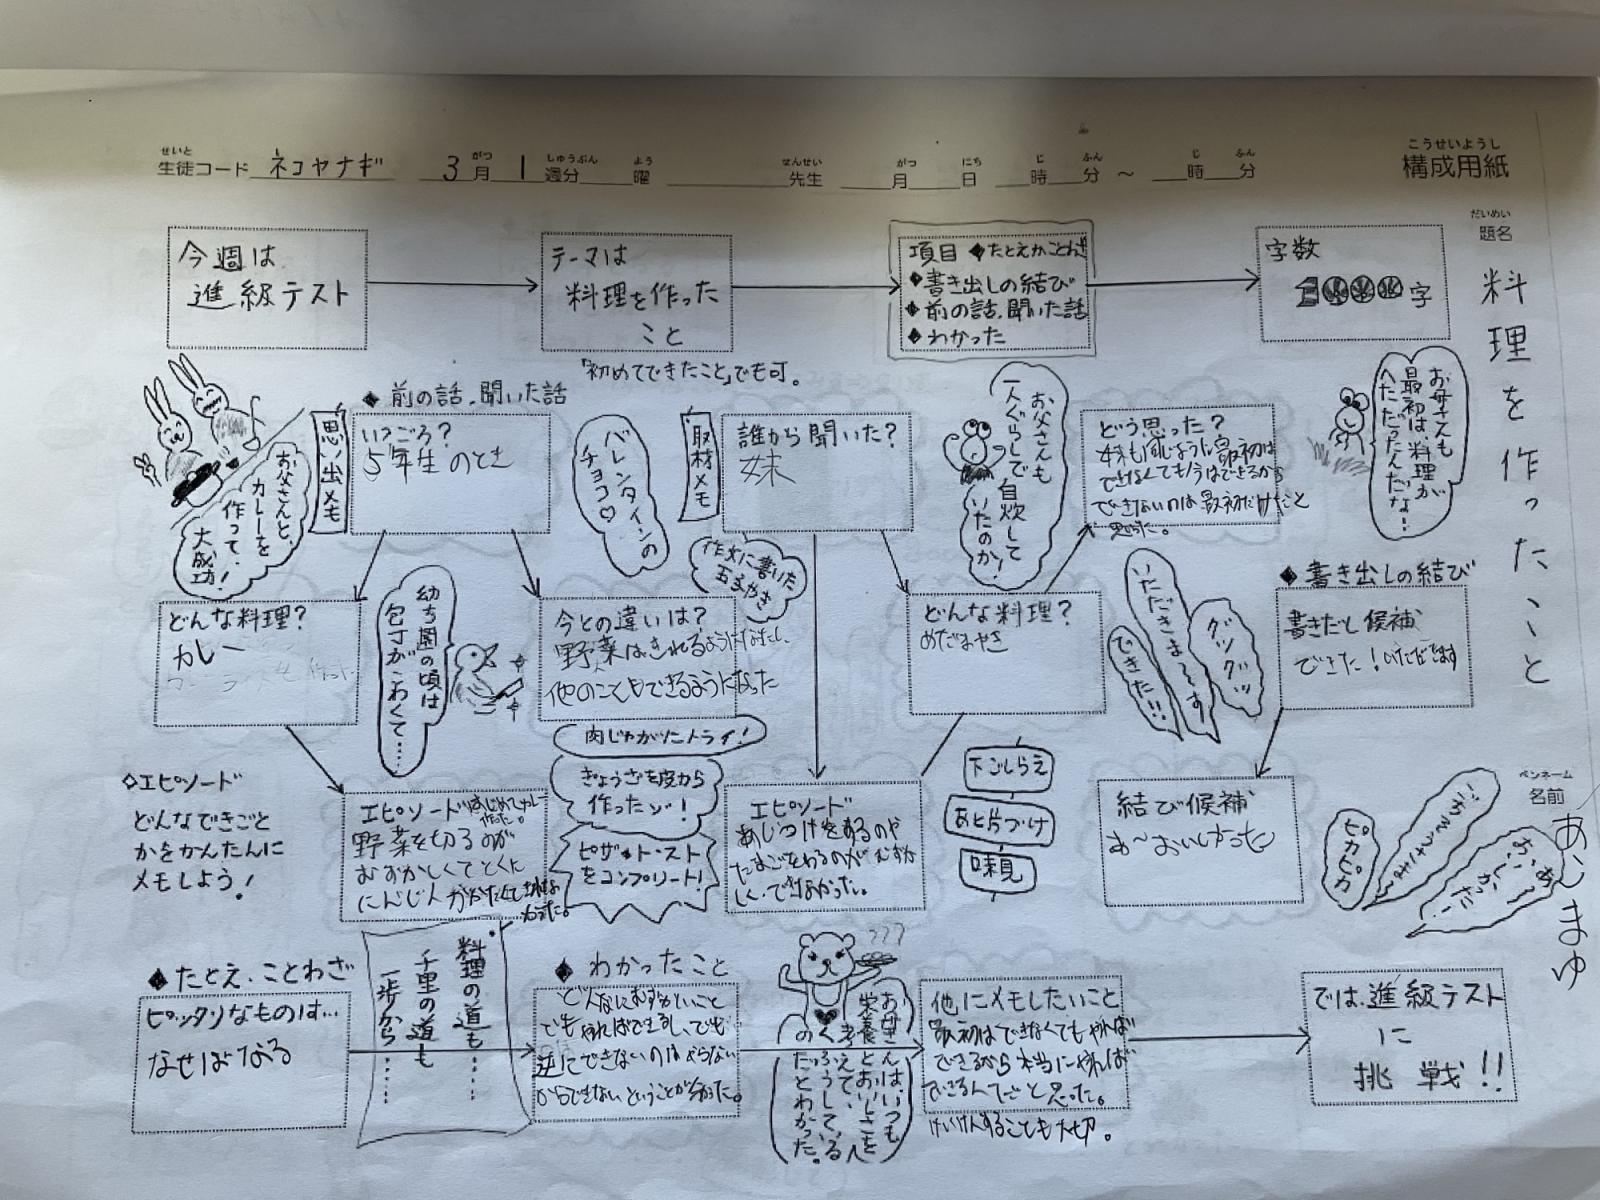 構成用紙
こうせいようし
せいと
生徒コード ネコヤナギ 3月 1週分 曜 先生 月 日 時 分 ～ 時 分
がつ しゅうぶん よう せんせい がつ にち じ ふん じ ふん
だいめい
題名
料理を作ったこと
ペンネーム
名前
あんまゆ
今週は
進級テスト
テーマは
料理を作った
こと
「初めてできたこと」でも可。
項目 ◆たとえかことわざ
◆書き出しの結び
◆前の話、聞いた話
◆わかった
字数
1000字
◆前の話、聞いた話
思い出メモ
いつごろ?
5年生のとき
お父さんと、
カレーを
作って、
大成功!
どんな料理?
カレー
幼ち園の頃は
包丁がこわくて……
今との違いは?
野菜はきれるようになたし、
他のこともできるようになった
肉じゃがにトライ!
ぎょうざを皮から
作ったゾ!
ピザ・トースト
をコンプリート!
◇エピソード
どんなできごと
かをかんたんに
メモしよう!
エピソード はじめてカレー
作った。
野菜を切るのが
むずかしくてとくに
にんじん
バレンタインの
チョコ♡
取材メモ
誰から聞いた?
妹
作文に書いた
玉子やき
どんな料理?
めだまやき
エピソード
あじつけをするのや
たまごをわるのがむずか
しく、できなかった。
お父さんも
一人ぐらしで自炊して
いたのか!
どう思った?
妹も同じように最初は
できなくても今はできるから
できないのは最初だけだと
思った。
お母さんも
最初は料理が
へただったんだな!
◆書き出しの結び
書きだし候補
できた!いただきます
いただきま～す
できた!
グツグツ
結び候補
あ～おいしかった
下ごしらえ
あと片づけ
味見
ピカピカ
ごちそうさま
あ～
おいしかった
◆たとえ・ことわざ
ピッタリなものは…
なせばなる
料理の道も……
千里の道も
一歩から……
◆わかったこと
どんなにむずかしいこと
でもやればできるし、でも
逆にできないのはやらない
からできないということが分かった。
???
お母さんは、いつも
栄養とおいしさを
考えて、
くふうしている
のだとわかった。
他にメモしたいこと
最初はできなくてもやれば
できるから本当にやれば
できるんだと思った。
けいけんすることも大切。
では、進級テスト
に
挑戦!!